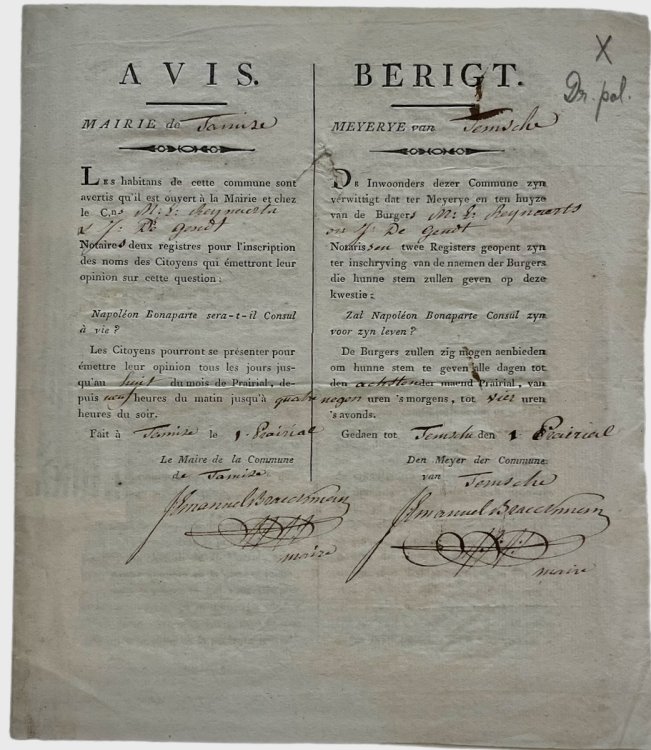 X
Dr. pol.
AVIS.
MAIRIE de Tamise
Les habitans de cette commune sont
avertis qu'il est ouvert à la Mairie et chez
le C.ns M: L: Reynaerts
& J: De Gendt
Notaires deux registres pour l'inscription
des noms des Citoyens qui émettront leur
opinion sur cette question:
Napoléon Bonaparte sera-t-il Consul
à vie?
Les Citoyens pourront se présenter pour
émettre leur opinion tous les jours jus-
qu'au huit du mois de Prairial, de-
puis neuf heures du matin jusqu'à quatre
heures du soir.
Fait à Tamise le 1 Prairial
Le Maire de la Commune
de Tamise
maire
BERIGT.
MEYERYE van Temsche
De Inwoonders dezer Commune zyn
verwittigt dat ter Meyerye en ten huyze
van de Burgers M: L: Reynaerts
en J: De Gendt
Notarissen twée Registers geopent zyn
ter inschryving van de naemen der Burgers
die hunne stem zullen geven op deze
kwestie:
Zal Napoléon Bonaparte Consul zyn
voor zyn leven?
De Burgers zullen zig mogen aenbieden
om hunne stem te geven alle dagen tot
den achtsten der maend Prairial, van
negen uren 's morgens, tot vier uren
's avonds.
Gedaen tot Temsche den 1 Prairial
Den Meyer der Commune
van Temsche
maire